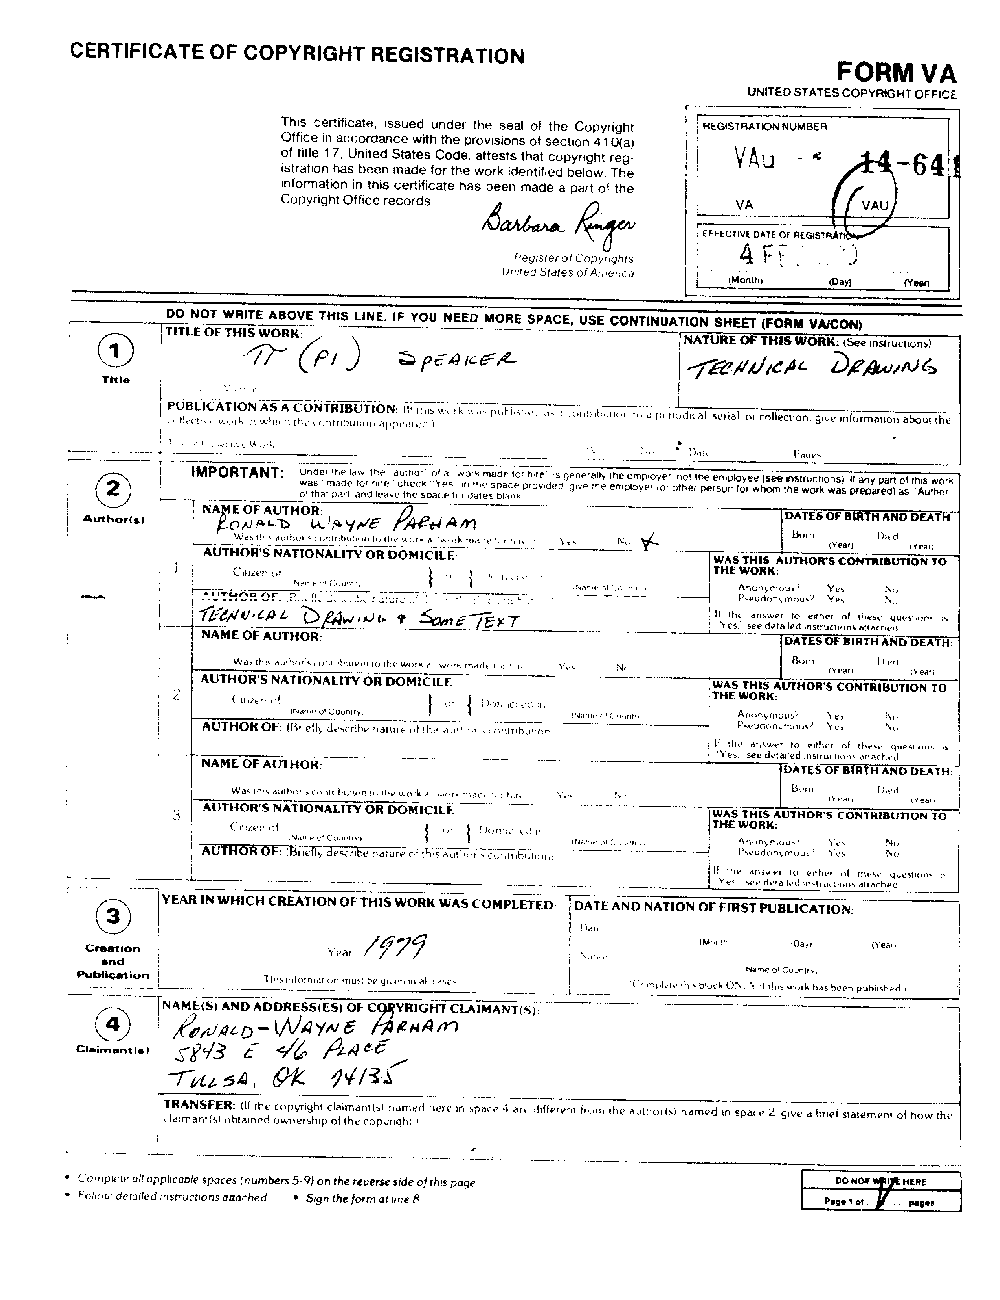 CERTIFICATE OF COPYRIGHT REGISTRATION
FORM VA
UNITED STATES COPYRIGHT OFFICE
This certificate, issued under the seal of the Copyright
Office in accordance with the provisions of section 410(a)
of title 17, United States Code, attests that copyright reg-
istration has been made for the work identified below. The
information in this certificate has been made a part of the
Copyright Office records
Barbara Ringer
Register of Copyrights
United States of America
REGISTRATION NUMBER
VAu - 14-641
VA VAU
EFFECTIVE DATE OF REGISTRATION
4 FE
(Month) (Day) (Year)
DO NOT WRITE ABOVE THIS LINE. IF YOU NEED MORE SPACE, USE CONTINUATION SHEET (FORM VA/CON)
1
Title
TITLE OF THIS WORK:
π (PI) SPEAKER
NATURE OF THIS WORK: (See instructions)
TECHNICAL DRAWING
PUBLICATION AS A CONTRIBUTION: (If this work was published as a contribution to a periodical, serial, or collection, give information about the
collective work in which the contribution appeared.)
Date Pages
2
Author(s)
IMPORTANT: Under the law, the "author" of a "work made for hire" is generally the employer, not the employee (see instructions). If any part of this work
was "made for hire" check "Yes" in the space provided, give the employer (or other person for whom the work was prepared) as "Author"
of that part, and leave the space for dates blank
1
NAME OF AUTHOR:
RONALD WAYNE PARHAM
Was this author's contribution to the work a "work made for hire"? Yes No X
DATES OF BIRTH AND DEATH
Born Died
(Year) (Year)
AUTHOR'S NATIONALITY OR DOMICILE:
Citizen of } or {
(Name of Country) (Name of Country)
WAS THIS AUTHOR'S CONTRIBUTION TO
THE WORK:
Anonymous? Yes No
Pseudonymous? Yes No
AUTHOR OF:
TECHNICAL DRAWING + SOME TEXT
If the answer to either of these questions is
"Yes," see detailed instructions attached
2
NAME OF AUTHOR:
Was this author's contribution to the work a "work made for hire"? Yes No
DATES OF BIRTH AND DEATH:
Born Died
(Year) (Year)
AUTHOR'S NATIONALITY OR DOMICILE
Citizen of } or { Domiciled in
(Name of Country) (Name of Country)
WAS THIS AUTHOR'S CONTRIBUTION TO
THE WORK:
Anonymous? Yes No
Pseudonymous? Yes No
AUTHOR OF: (Briefly describe nature of this author's contribution)
If the answer to either of these questions is
"Yes," see detailed instructions attached
3
NAME OF AUTHOR:
Was this author's contribution to the work a "work made for hire"? Yes No
DATES OF BIRTH AND DEATH:
Born Died
(Year) (Year)
AUTHOR'S NATIONALITY OR DOMICILE
Citizen of } or { Domiciled in
(Name of Country) (Name of Country)
WAS THIS AUTHOR'S CONTRIBUTION TO
THE WORK:
Anonymous? Yes No
Pseudonymous? Yes No
AUTHOR OF: (Briefly describe nature of this author's contribution)
If the answer to either of these questions is
"Yes," see detailed instructions attached
3
Creation
and
Publication
YEAR IN WHICH CREATION OF THIS WORK WAS COMPLETED:
Year 1979
(This information must be given in all cases)
DATE AND NATION OF FIRST PUBLICATION:
Date
(Month) (Day) (Year)
Nation
(Name of Country)
(Complete this block ONLY if this work has been published.)
4
Claimant(s)
NAME(S) AND ADDRESS(ES) OF COPYRIGHT CLAIMANT(S):
RONALD-WAYNE PARHAM
5843 E 46 PLACE
TULSA, OK 74135
TRANSFER: (If the copyright claimant(s) named here in space 4 are different from the author(s) named in space 2, give a brief statement of how the
claimant(s) obtained ownership of the copyright.)
• Complete all applicable spaces (numbers 5-9) on the reverse side of this page
• Follow detailed instructions attached • Sign the form at line 8
DO NOT WRITE HERE
Page 1 of pages